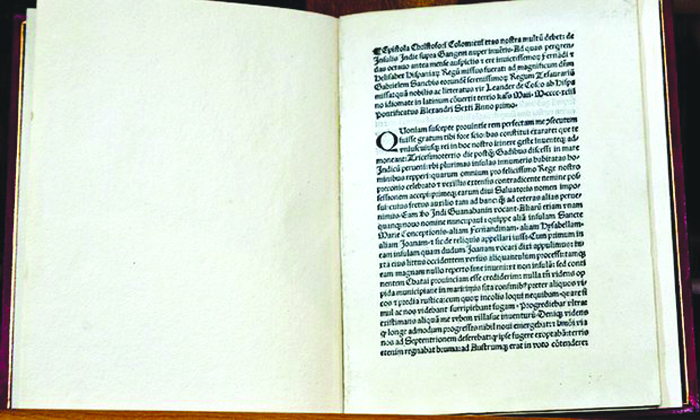 Epistola Christofori Colom: cui etas nostra multũ debet: de
Insulis Indie supra Gangem nuper inuẽtis. Ad quas perqren-
das octauo antea mense auspiciis ⁊ ere inuictissimoꝝ Fernãdi ⁊
Helisabet Hispaniaꝝ Regũ missus fuerat: ad magnificum dñm
Gabrielem Sanchis eorundẽ serenissimoꝝ Regum Tesaurariũ
missa: quã nobilis ac litteratus vir Leander de Cosco ab Hispa
no idiomate in latinum cõuertit tertio kals Maii M.cccc.xciii
Pontificatus Alexandri Sexti Anno primo.
Quoniam suscepte prouintie rem perfectam me ↄsecutum
fuisse gratum tibi fore scio: has constitui exarare: que te
vniuscuiusqꝫ rei in hoc nostro itinere geste inuenteqꝫ ad-
moneant: Tricesimotertio die postqꝫ Gadibus discessi in mare
Indicũ perueni: vbi plurimas insulas innumeris habitatas ho-
minibus repperi: quarum omnium pro felicissimo Rege nostro
preconio celebrato ⁊ vexillis extensis contradicente nemine pos-
sessionem accepi: primeqꝫ earum diui Saluatoris nomen impo-
sui: cuius fretus auxilio tam ad hanc: qꝫ ad ceteras alias perue-
nimus. Eam ꝟo Indi Guanahanin vocant. Aliarũ etiam vnam
quanqꝫ nouo nomine nuncupaui: quippe aliã insulam Sancte
Marie Conceptionis. aliam Fernandinam. aliam Hysabellam.
aliam Joanam. ⁊ sic de reliquis appellari iussi. Cum primum in
eam insulam quam dudum Joanam vocari dixi appulimus: iu
xta eius littus occidentem versus aliquantulum processi: tamqꝫ
eam magnam nullo reperto fine inueni: vt non insulã: sed conti
nentem Chatai prouinciam esse crediderim: nulla tñ videns op
pida municipiaue in maritimis sita confinibꝰ preter aliquos vi-
cos ⁊ predia rustica: cum quoꝝ incolis loqui nequibam. quare si
mul ac nos videbant surripiebant fugam. Progrediebar vltra:
existimans aliquã me vrbem villasue inuenturũ. Deniqꝫ videns
qꝫ longe admodum progressis nihil noui emergebat: ⁊ hmõi via
nos ad Septentrionem deferebat: qꝫ ipse fugere exoptabã: terris
etenim regnabat bruma: ad Austrumqꝫ erat in voto cõtendere: